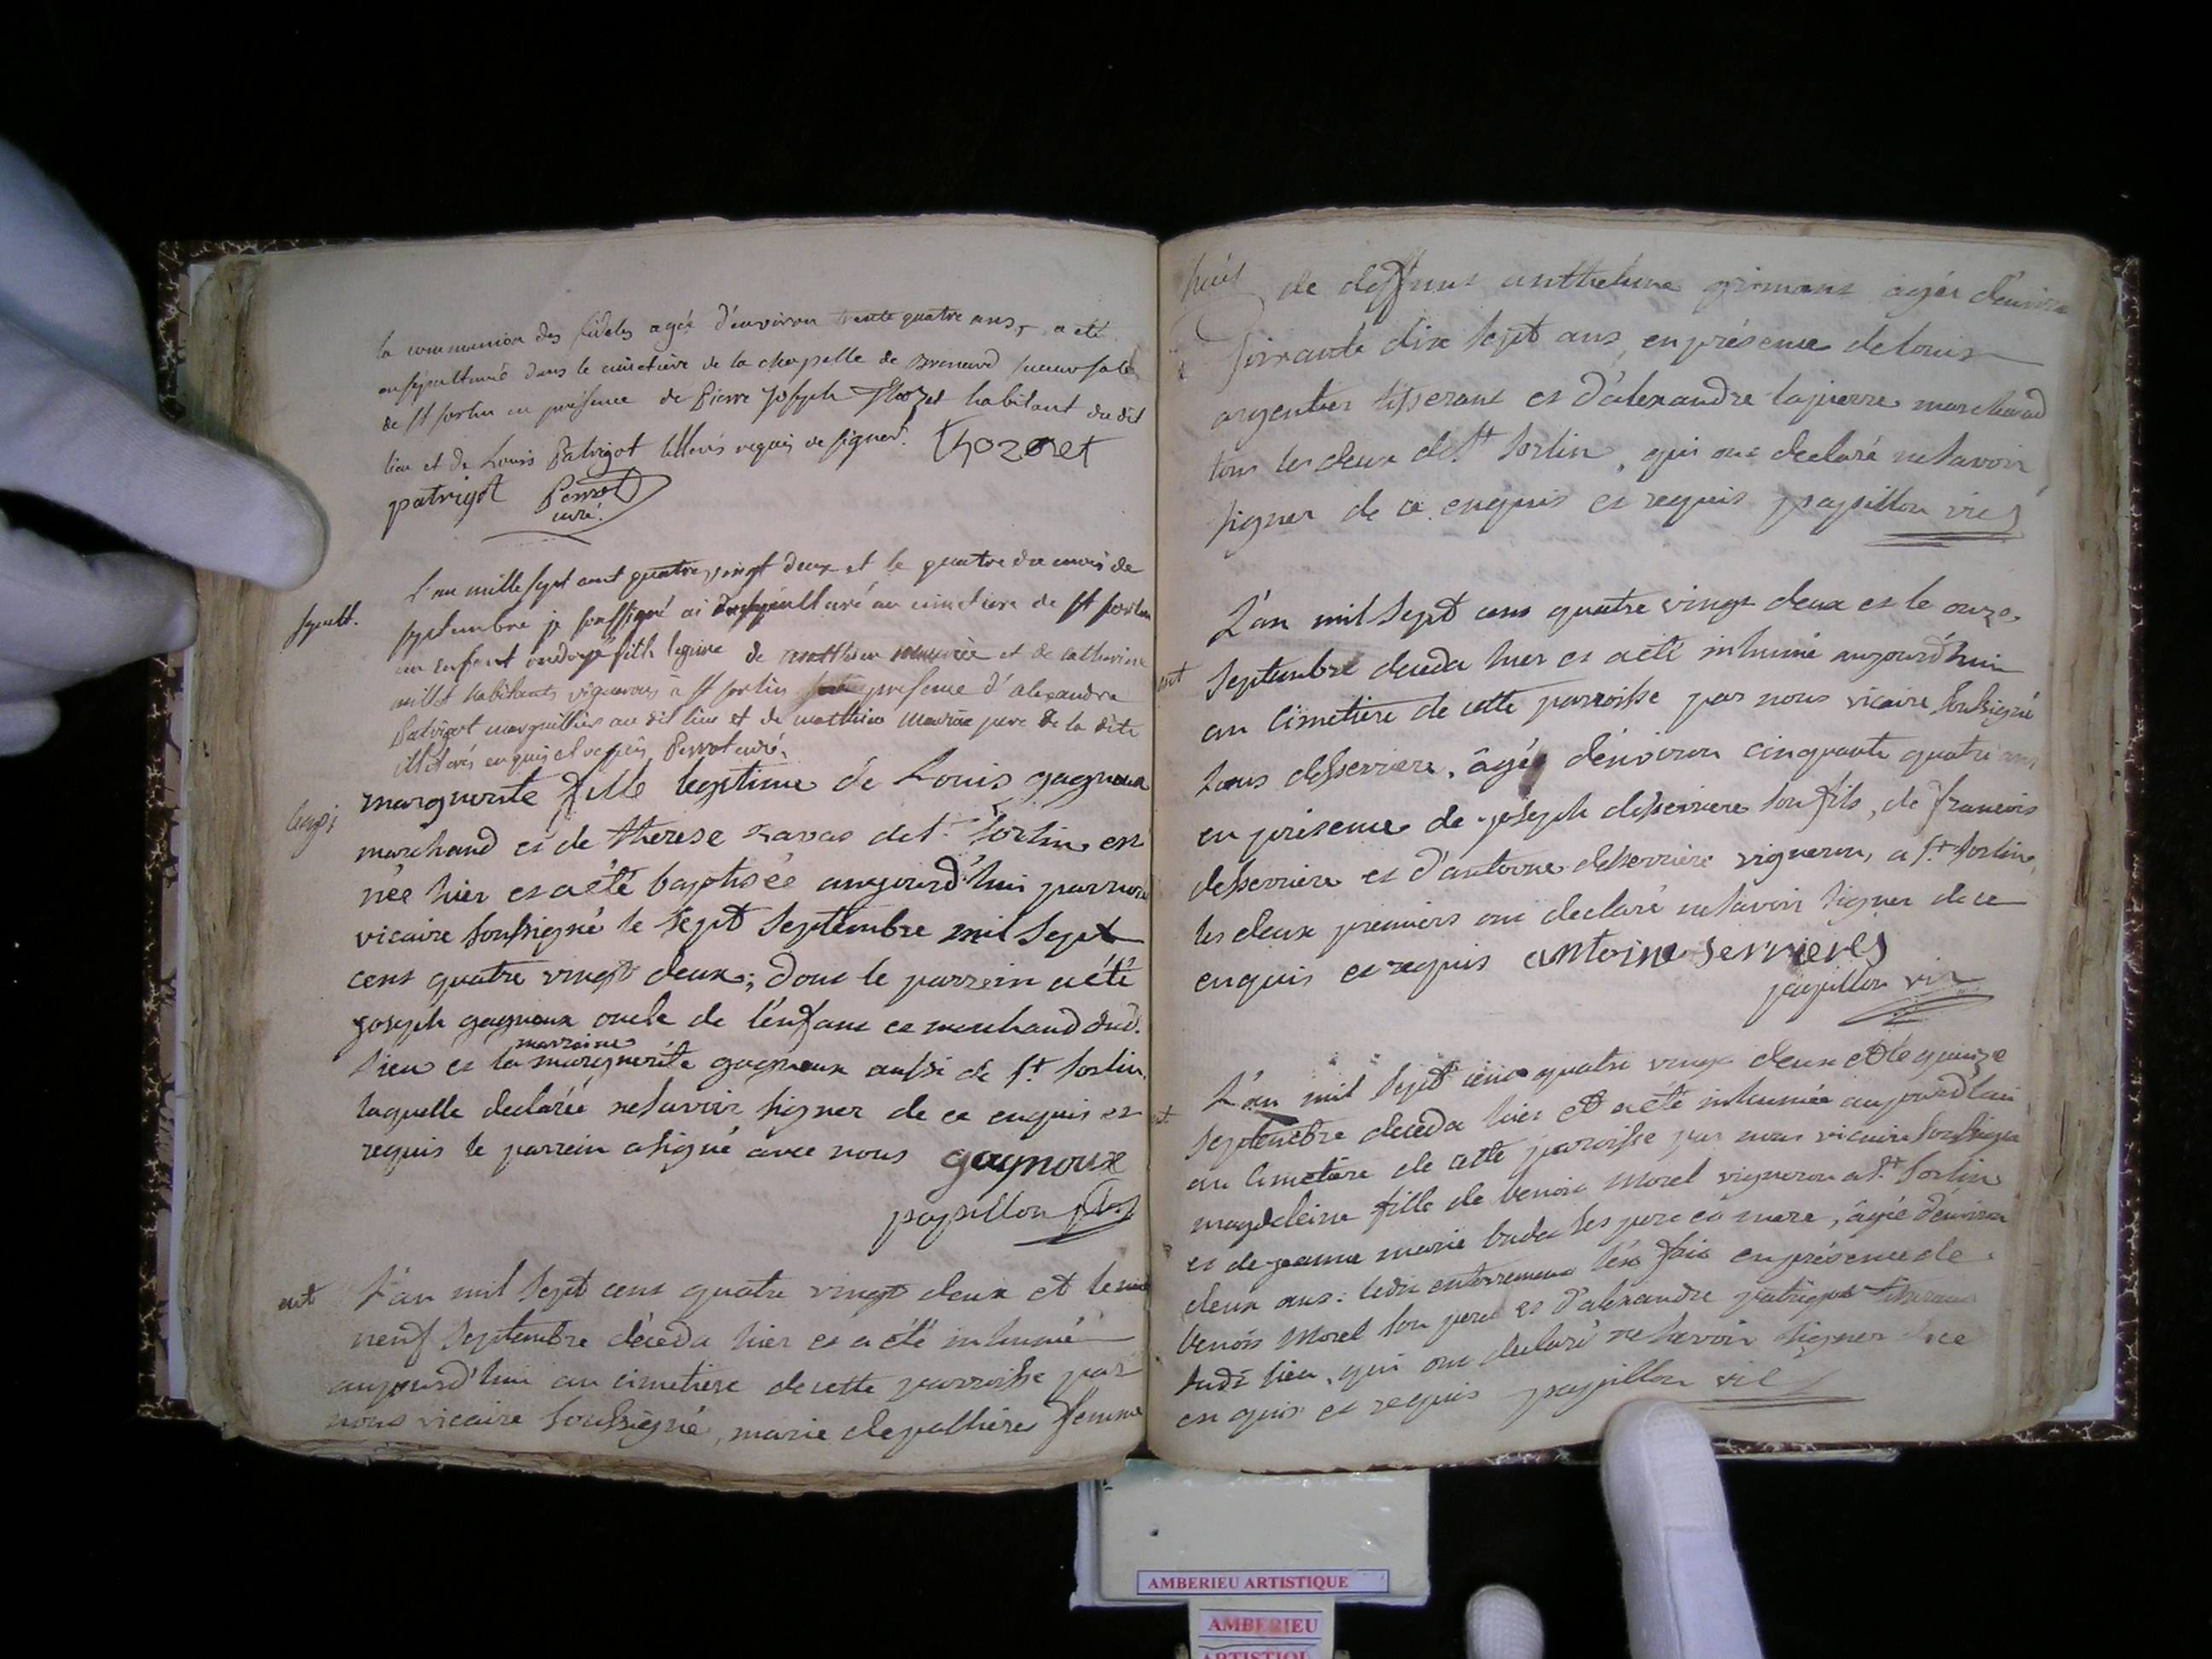 la communion des fideles agée d'environ trente quatre ans, a eté
ensépulturé dans le cimetiere de la chapelle de succursale
de st sorlin en présence de Pierre Joseph Thozet habitant du dit
lieu et de Louis Patrigot requis de signer. thozet
patrigot Perrot
curé.
sepult.
L'an mille sept cent quatre vingt deux et le quatre du mois de
septembre je soussigné ai ensepulturé au cimetiere de st sorlin
un enfant ondoyé de matthieu et de catherine
millet habitants vignerons à st sorlin presence d'alexandre
Patrigot marguillier au dit lieu et de mathieu pere de la dite
illiterés enquis et requis Perrot curé.
bapt
marguerite fille legitime de Louis gagneux
marchand et de therese ravas de st. Sorlin est
née hier et a été baptisée aujourd'hui par nous
vicaire soussigné le sept septembre mil sept
cent quatre vingt deux; dont le parrein a été
joseph gagneux oncle de l'enfant et marchand dud.
marraine
lieu et la marguerite gagneux aussi de st. Sorlin.
laquelle declarée ne savoir signer de ce enquis et
requis le parrein a signé avec nous gagnoux
papillon
ent
L'an mil sept cent quatre vingt deux et le
neuf septembre déceda hier et a été inhumé
aujourd'hui au cimetiere de cette parroisse par
nous vicaire soussigné, marie depallieres femme
huit
de deffunt anthelme grimans agée d'environ
soixante dix sept ans, en présence de louis
argentier tisserant et d'alexandre lapierre marchand
tous les deux de st Sorlin, qui ont declaré ne savoir
signer de ce enquis et requis papillon vic
ent
L'an mil sept cent quatre vingt deux et le onze
septembre deceda hier et a été inhumé aujourd'hui
au cimetiere de cette parroisse par nous vicaire soussigné
desserriere, âgé d'environ cinquante quatre ans
en présence de joseph desserriere son fils, de francois
desserriere et d'antoine desserrière vigneron, a st. Sorlin,
les deux premiers ont declaré ne savoir signer de ce
enquis et requis antoine serrieres
papillon vic
ent.
L'an mil sept cent quatre vingt deux et le quinze
septembre deceda hier et a été inhumée aujourd'hui
au cimetiere de cette paroisse par nous vicaire soussigné
magdeleine fille de benoit morel vigneron a st. Sorlin
et de jeanne marie ses pere et mere, âgée d'environ
deux ans: ledit enterrement s'est fait en présence de
benoit morel son pere et d'alexandre patrigot tisserant
dudt lieu, qui ont declaré ne savoir signer de ce
enquis et requis papillon vic
AMBERIEU ARTISTIQUE
AMBERIEU
ARTISTIQUE